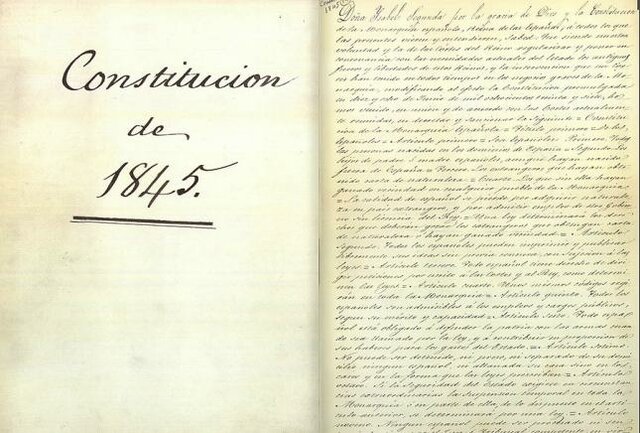 Constitucion
de
1845.
Doña Isabel Segunda por la gracia de Dios y la Constitucion
de la Monarquia española, Reina de las Españas, á todos los que
las presentes vieren y entendieren, sabed: Que siendo nuestra
voluntad y la de las Córtes del Reino regularizar y poner en
consonancia con las necesidades actuales del Estado los antiguos
fueros y libertades de estos Reinos, y la intervencion que sus Cortes
han tenido en todos tiempos en los negocios graves de la Mo-
narquia, modificando al efecto la Constitucion promulgada
en diez y ocho de Junio de mil ochocientos treinta y siete, he-
mos venido, en union y de acuerdo con las Cortes actualmen-
te reunidas, en decretar y sancionar la siguiente = Constitu-
cion de la Monarquia Española = Titulo primero = De los
Españoles = Articulo primero = Son Españoles: Primero: Todas
las personas nacidas en los dominios de España = Segundo: Los
hijos de padre ó madre españoles, aunque hayan nacido
fuera de España = Tercero: Los extrangeros que hayan obte-
nido carta de naturaleza = Cuarto: Los que sin ella hayan
ganado vecindad en cualquier pueblo de la Monarquia
= La calidad de español se pierde por adquirir naturaleza
en pais extrangero, y por admitir empleo de otro Gobier-
no sin licencia del Rey = Una ley determinará los dere-
chos que deberán gozar los extrangeros que obtengan carta
de naturaleza ó hayan ganado vecindad = Articulo
segundo. Todos los españoles pueden imprimir y publicar
libremente sus ideas sin previa censura, con sujecion á las
leyes = Articulo tercero. Todo español tiene derecho de diri-
gir peticiones por escrito á las Cortes y al Rey, como determi-
nen las leyes = Articulo cuarto. Unos mismos códigos regi-
rán en toda la Monarquia = Articulo quinto. Todos los
españoles son admisibles á los empleos y cargos públicos,
segun su mérito y capacidad = Articulo sexto. Todo espa-
ñol está obligado á defender la patria con las armas cuan-
do sea llamado por la ley, y á contribuir en proporcion de
sus haberes para los gastos del Estado = Articulo setimo.
No puede ser detenido, ni preso, ni separado de su domi-
cilio ningun español, ni allanada su casa sino en los
casos y en la forma que las leyes prescriban = Articulo
octavo. Si la seguridad del Estado exigiere en circunstan-
cias extraordinarias la suspension temporal en toda la
Monarquia ó en parte de ella, de lo dispuesto en el artí-
culo anterior, se determinará por una ley = Articulo
noveno. Ningun español puede ser procesado ni sen-